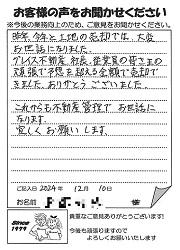 お客様の声をお聞かせください
※今後の業務向上のため、ご意見をお聞かせください。
昨年、今年と土地の売却では、大変
お世話になりました。
グレイス不動産 社長、従業員の皆さまの
頑張で予想を超える金額で売却で
きました。ありがとうございました。
これからも不動産管理でお世話に
なります。
宜しくお願いします。
ご記入日 2024年 12月 10日
お名前 様
Since
1999
貴重なご意見ありがとうございます!
今後も頑張りますので
よろしくお願いいたします